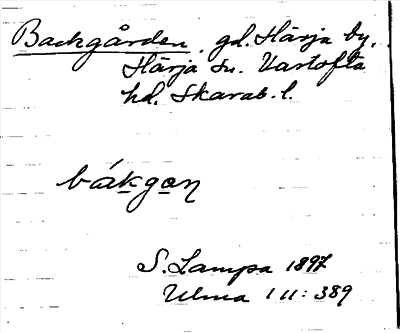 Backgården, gd. Härja by,
Härja sn. Vartofta
hd. Skarab. l.
bákgo̲n
S. Lampa 1897
Ulma 1 11: 389